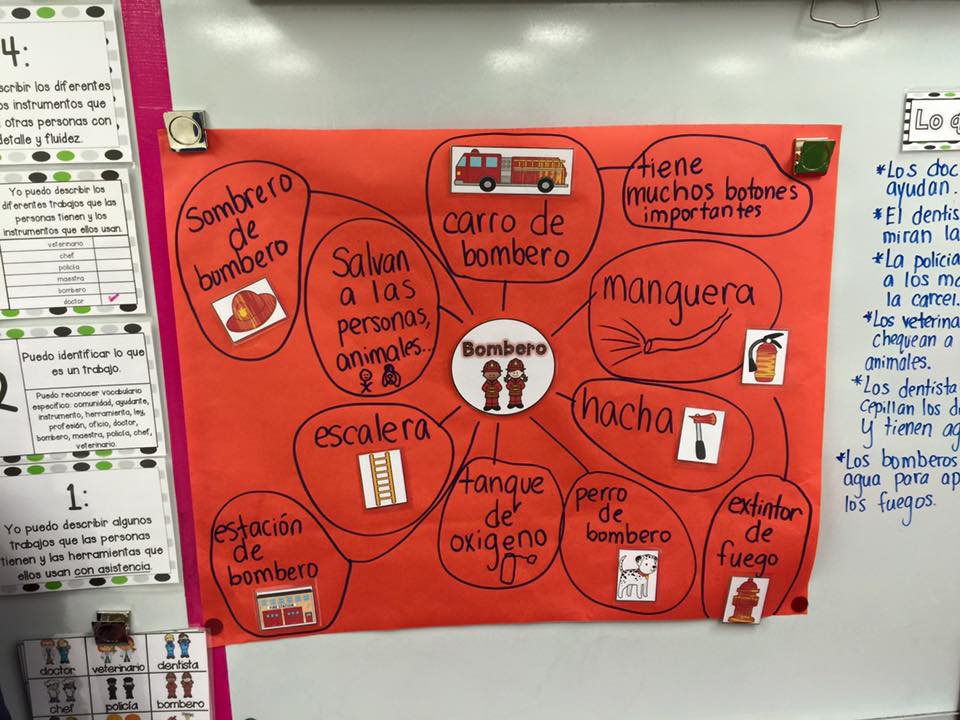 4:
los diferentes
instrumentos que
otras personas con
y fluidez.
Yo puedo describir los
diferentes trabajos que las
personas tienen y los
instrumentos que ellos usan.
veterinario
chef
policía
maestra
bombero
doctor
2
Puedo identificar lo que
es un trabajo.
Puedo reconocer vocabulario
específico: comunidad, ayudante,
instrumento, herramienta, ley,
profesión, oficio, doctor,
bombero, maestra, policía, chef,
veterinario.
1:
Yo puedo describir algunos
trabajos que las personas
tienen y las herramientas que
ellos usan con asistencia.
doctor veterinario dentista
chef policía bombero
Sombrero
de
bombero
Salvan
a las
personas,
animales..
carro de
bombero
tiene
muchos botones
importantes
manguera
Bombero
hacha
escalera
tanque
de
oxigeno
perro
de
bombero
extintor
de
fuego
estación
de
bombero
FIRE STATION
Lo
*Los
ayudan.
*El
miran
*La policía
a los
la carcel.
*Los
chequean a
animales.
*Los dentista
cepillan los
y tienen
*Los bomberos
agua para
los fuegos.